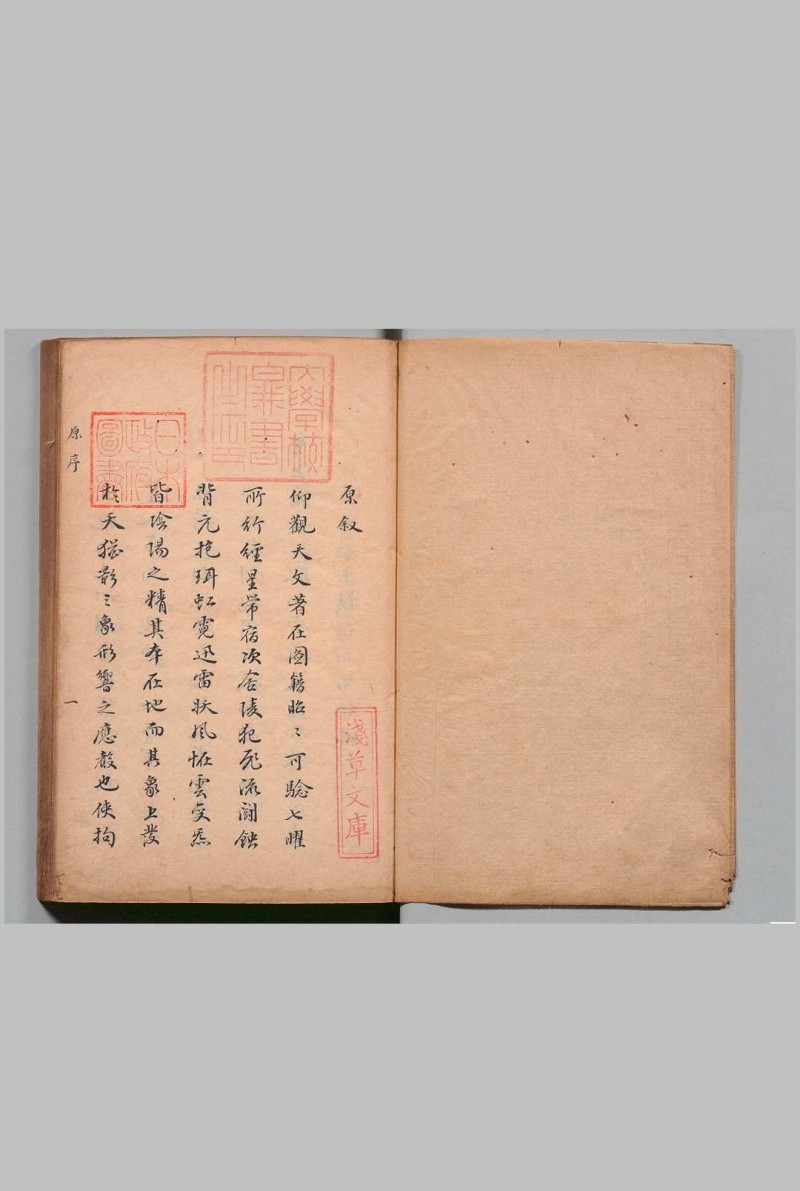 原叙
仰觀天文著在圖籍昭〻可驗七曜
所行經星常宿次舍陵犯飛流鬪蝕
背冗抱珥虹霓迅雷妖風恠雲變氣
皆陰陽之精其本在地而其象上發
於天猶影〻象形響之應聲也俠拘
原序
一
淺草文庫
日本政府圖書